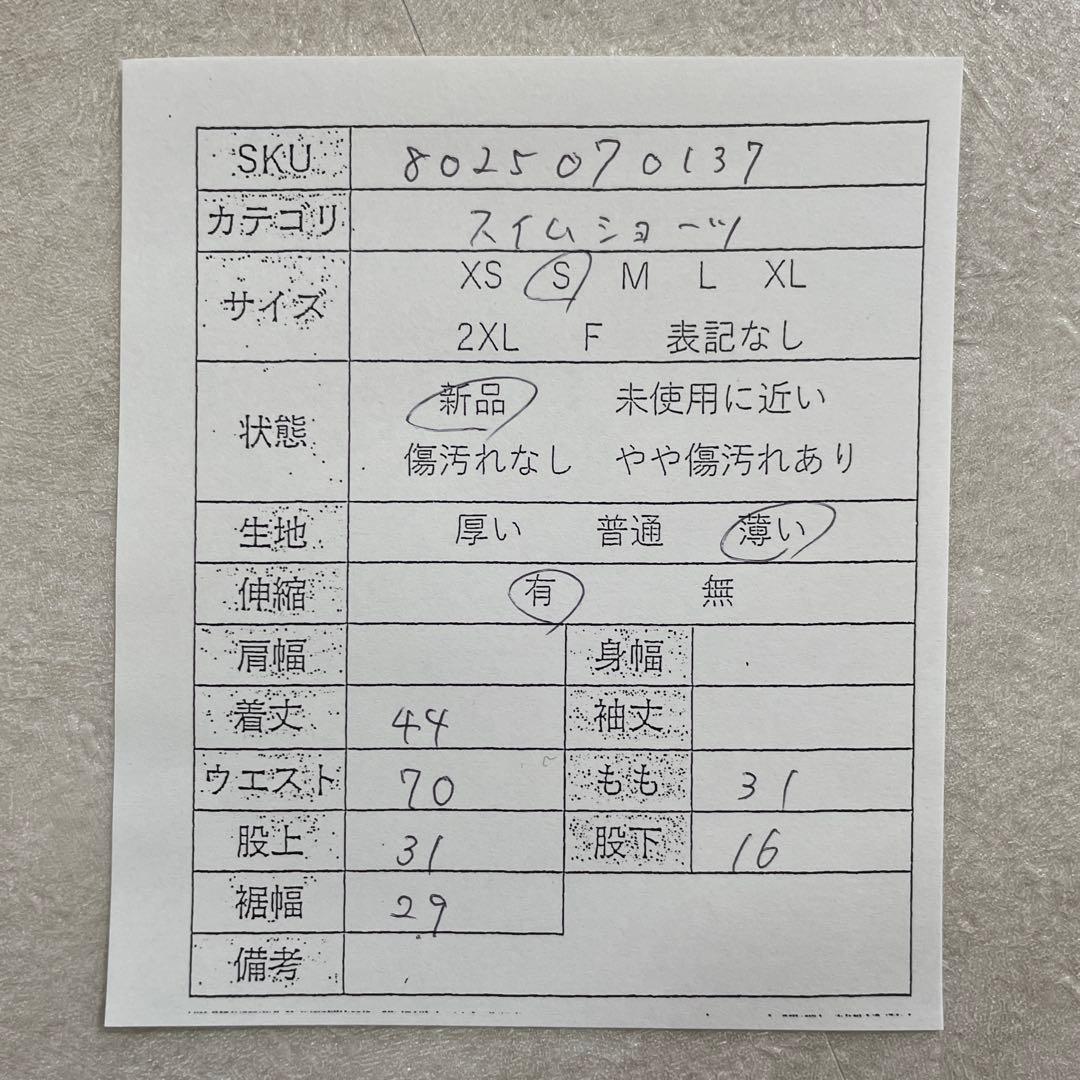 SKU 8025070137
カテゴリ スイムショーツ
サイズ XS S M L XL
2XL F 表記なし
状態 新品 未使用に近い
傷汚れなし やや傷汚れあり
生地 厚い 普通 薄い
伸縮 有 無
肩幅 身幅
着丈 44 袖丈
ウエスト 70 もも 31
股上 31 股下 16
裾幅 29
備考